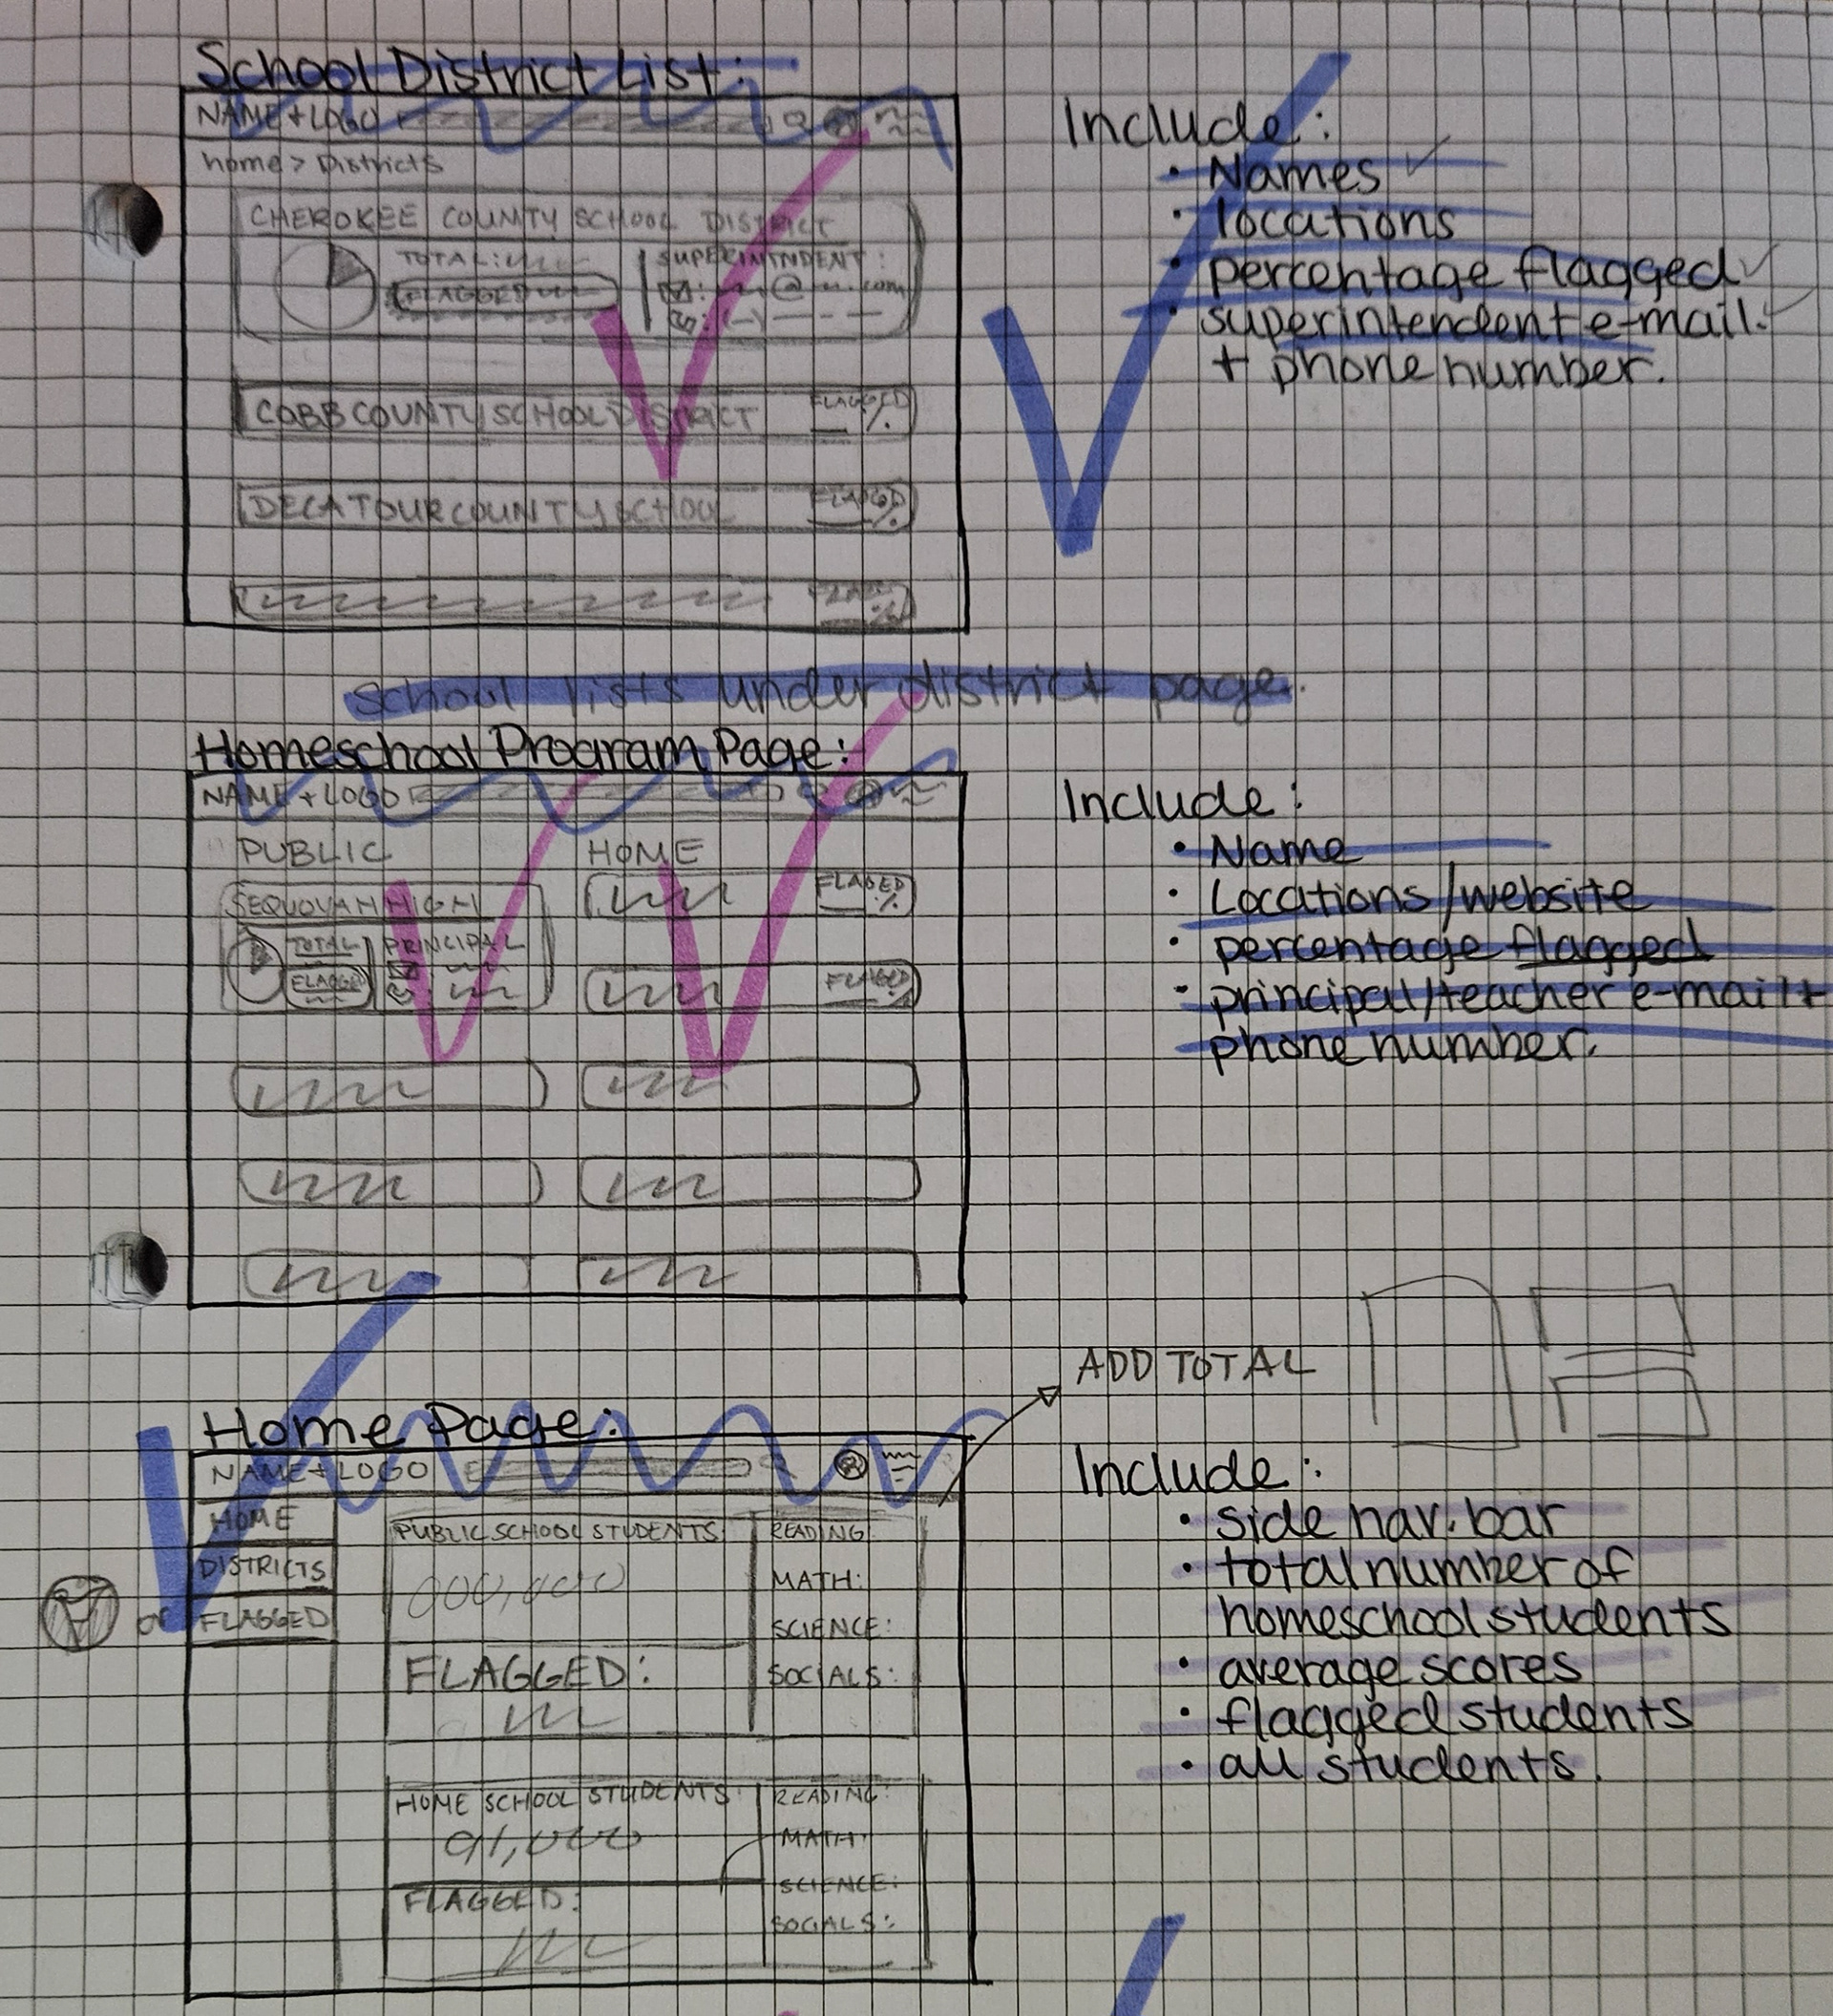 School District List:
NAME + LOGO
home > Districts
CHEROKEE COUNTY SCHOOL DISTRICT
TOTAL:
FLAGGED
SUPERINTNDENT:
@ .com
COBB COUNTY SCHOOL DISTRICT
FLAGGED
%
DECATOUR COUNTY SCHOOL
FLAGGED
%
Include:
• Names
• locations
• percentage flagged
• superintendent e-mail
+ phone number.
school lists under district page.
Homeschool Program Page:
NAME + LOGO
PUBLIC
SEQUOYAH HIGH
TOTAL
FLAGGED
PRINCIPAL
HOME
FLAGED
%
FLAGGED
%
Include:
• Name
• Locations/website
• percentage flagged
• principal/teacher e-mail +
phone number.
ADD TOTAL
Home Page:
NAME + LOGO
HOME
DISTRICTS
or FLAGGED
PUBLIC SCHOOL STUDENTS
000,000
FLAGGED:
READING
MATH:
SCIENCE:
SOCIALS:
HOME SCHOOL STUDENTS:
91,000
FLAGGED:
READING:
MATH:
SCIENCE:
SOCIALS:
Include:
• side nav. bar
• total number of
homeschool students
• average scores
• flagged students
• all students.